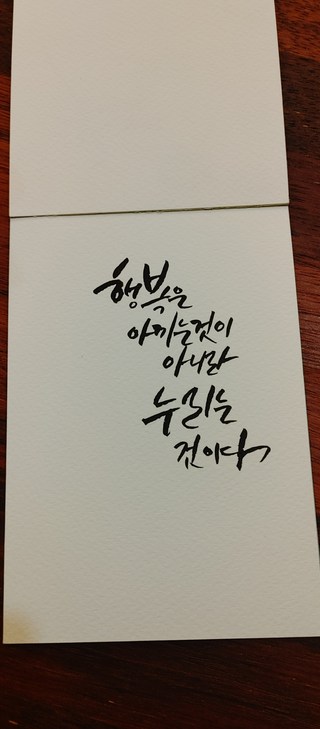 행복은
아끼는것이
아니라
누리는
것이다